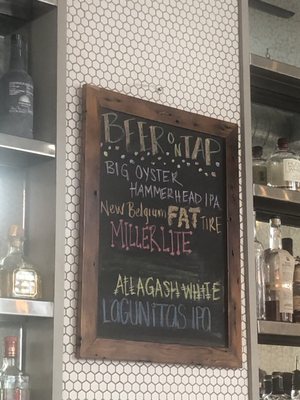 BEER ON TAP
BIG OYSTER
HAMMERHEAD IPA
New Belgium FAT TIRE
MILLER LITE
ALLAGASH WHITE
LAGUNITAS IPA